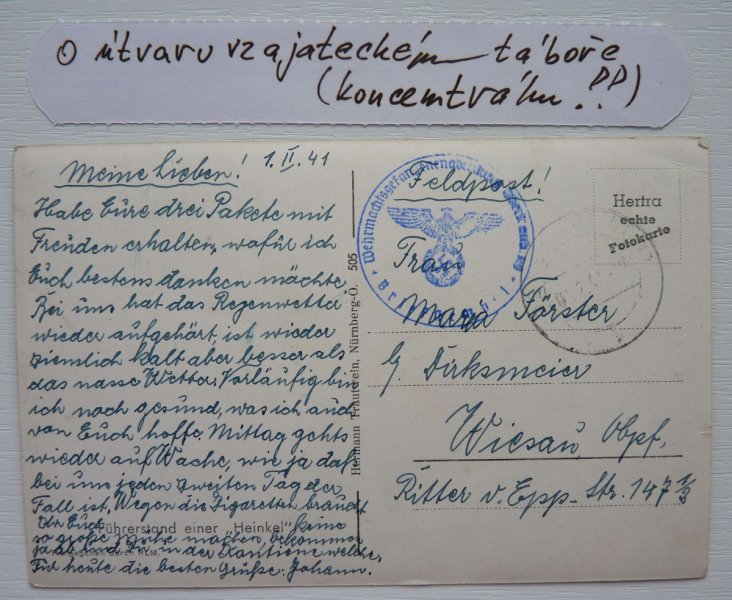 o útvaru v zajateckém táboře
(koncentrační ??)
Meine Lieben! 1.II.41
Habe Eure drei Pakete mit
Freuden erhalten, wofür ich
Euch bestens danken möchte.
Bei uns hat das Regenwetter
wieder aufgehört ist wieder
ziemlich kalt aber besser als
das nasse Wetter. Vorläufig bin
ich noch gesund, was ich auch
von Euch hoffe. Mittag gehts
wieder auf Wache, wie ja daß
bei uns jeden zweiten Tag der
Fall ist. Wegen die Zigaretten braucht
Ihr Euch keine
so große Mühe machen, bekommen
ja ab und zu in der Kantiene welche.
Für heute die besten Grüße: Johann.
Führerstand einer „Heinkel"
freigegeben durch RLM.
Hermann Trautwein, Nürnberg-O. 505
Feldpost!
Wehrmachtsgefan
Briefstempel
Hertra
echte
Fotokarte
Frau
Maria Förster
b. Dirksmeier
Wiesau, Obpf.
Ritter v. Epp-Str. 147 1/3